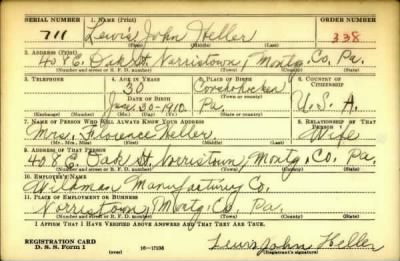 SERIAL NUMBER 1. NAME (Print) ORDER NUMBER
711 Lewis John Heller 338
(First) (Middle) (Last)
2. ADDRESS (Print)
408 E. Oak St. Norristown, Montg. Co. Pa.
(Number and street or R. F. D. number) (Town) (County) (State)
3. TELEPHONE 4. AGE IN YEARS 5. PLACE OF BIRTH 6. COUNTRY OF CITIZENSHIP
30 Conshohocken
DATE OF BIRTH (Town or county)
Jan. 30-1910 Pa. U. S. A.
(Exchange) (Number) (Mo.) (Day) (Yr.) (State or country)
7. NAME OF PERSON WHO WILL ALWAYS KNOW YOUR ADDRESS 8. RELATIONSHIP OF THAT PERSON
Mrs. Florence Heller Wife
(Mr., Mrs., Miss) (First) (Middle) (Last)
9. ADDRESS OF THAT PERSON
408 E. Oak St. Norristown, Montg. Co. Pa.
(Number and street or R. F. D. number) (Town) (County) (State)
10. EMPLOYER'S NAME
Wildman Manufacturing Co.
11. PLACE OF EMPLOYMENT OR BUSINESS
Norristown, Montg. Co. Pa.
(Number and street or R. F. D. number) (Town) (County) (State)
I AFFIRM THAT I HAVE VERIFIED ABOVE ANSWERS AND THAT THEY ARE TRUE.
REGISTRATION CARD
D. S. S. Form 1 (over) Lewis John Heller
(Registrant's signature)